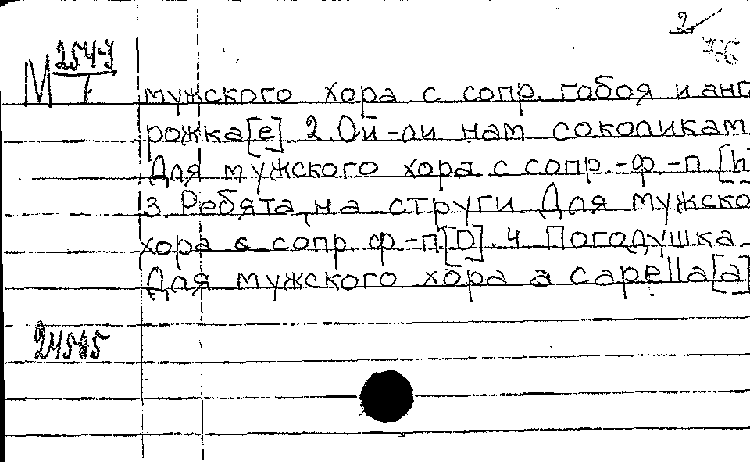 2
М 254-7
1
мужского хора с сопр. гобоя и анг
рожка[е]. 2. Ой-ли нам соколикам
Для мужского хора с сопр.-ф.-п. [h]
3. Ребята, на струги Для мужско
хора с сопр. ф-п.[D]. 4 Погодушка.
Для мужского хора a capella[a]